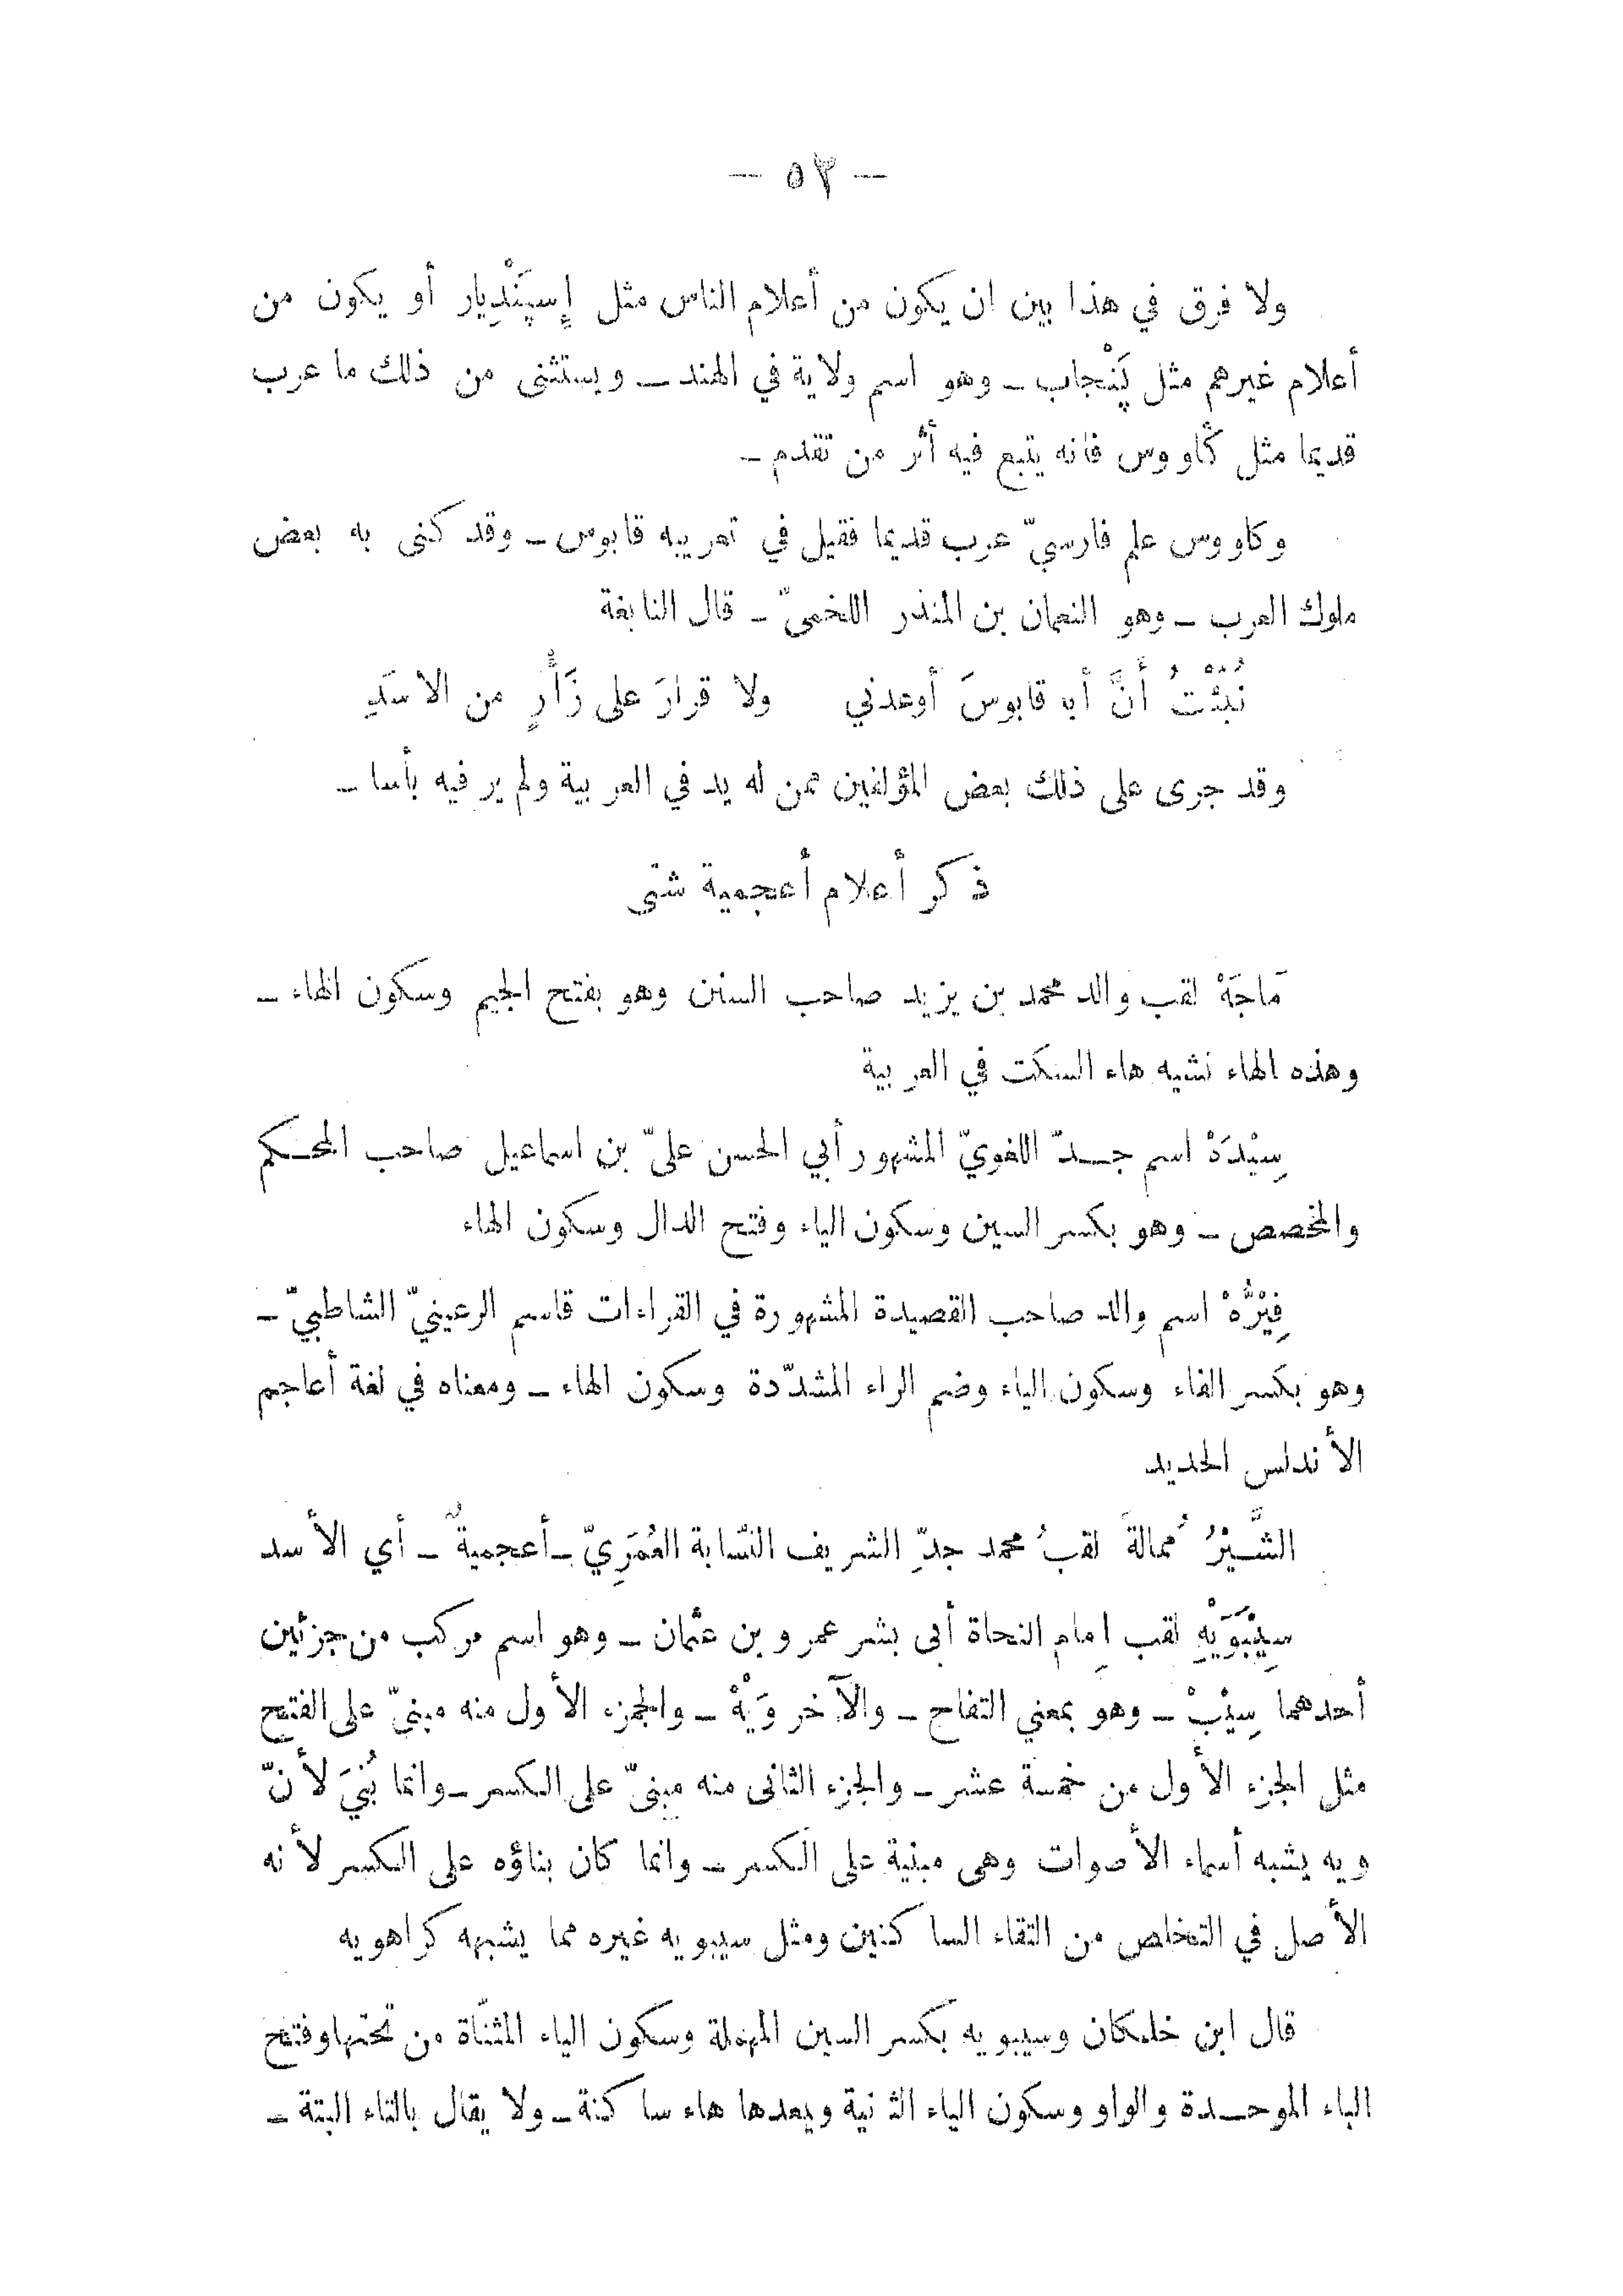 — ٥٣ —
ولا فرق في هذا بين ان يكون من أعلام الناس مثل إِسپَنْدِيار أو يكون من
أعلام غيرهم مثل پَنْجاب ــ وهو اسم ولاية في الهند ــ ويستثنى من ذلك ما عرب
قديما مثل كاووس فانه يتبع فيه أثر من تقدم ــ
وكاووس علم فارسيّ عرب قديما فقيل في تعريبه قابوس ــ وقد كنى به بعض
ملوك العرب ــ وهو النعمان بن المنذر اللخمىّ ــ قال النابغة
نُبِّئْتُ أَنَّ أبا قابوسَ أوعدني ولا قرارَ على زَأْرٍ من الاسَدِ
وقد جرى على ذلك بعض المؤلفين ممن له يد في العربية ولم ير فيه بأسا ــ
ذكر أعلام أعجمية شتى
مَاجَهْ لقب والد محمد بن يزيد صاحب السنن وهو بفتح الجيم وسكون الهاء ــ
وهذه الهاء تشبه هاء السكت في العربية
سِيْدَهْ اسم جــدّ اللغويّ المشهور أبي الحسن علىّ بن اسماعيل صاحب المحــكم
والمخصص ــ وهو بكسر السين وسكون الياء وفتح الدال وسكون الهاء
فِيْرُّهْ اسم والد صاحب القصيدة المشهورة في القراءات قاسم الرعينيّ الشاطبيّ ــ
وهو بكسر الفاء وسكون الياء وضم الراء المشدّدة وسكون الهاء ــ ومعناه في لغة أعاجم
الأندلس الحديد
الشَّيْرُ مُمالةً لقبُ محمد جدِّ الشريف النسّابة العُمَرِيّ ــ أعجميةٌ ــ أي الأسد
سِيْبَوَيْهِ لقب اِمام النحاة أبى بشر عمرو بن عثمان ــ وهو اسم مركب من جزئين
أحدهما سِيْبْ ــ وهو بمعني التفاح ــ والآخر وَيْهْ ــ والجزء الأول منه مبنيّ على الفتح
مثل الجزء الأول من خمسة عشر ــ والجزء الثانى منه مبنىّ على الكسر ــ وانما بُنيَ لأنّ
ويه يشبه أسماء الأصوات وهى مبنية على الكسر ــ وانما كان بناؤه على الكسر لأنه
الأصل في التخلص من التقاء الساكنين ومثل سيبويه غيره مما يشبهه كراهويه
قال ابن خلكان وسيبويه بكسر السين المهملة وسكون الياء المثنّاة من تحتها وفتح
الباء الموحــدة والواو وسكون الياء الثانية وبعدها هاء ساكنة ــ ولا يقال بالتاء البتة ــ